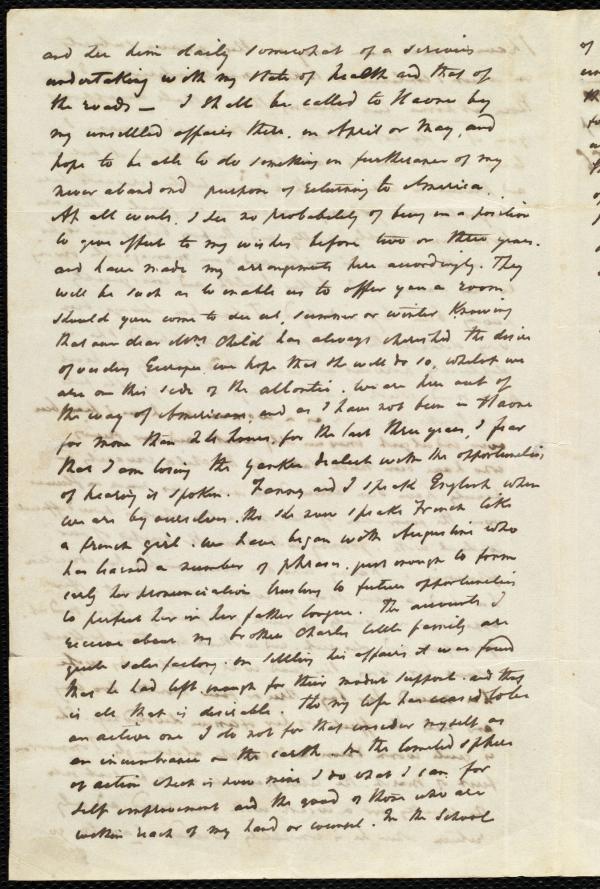 and see him daily somewhat of a serious
undertaking with my state of health and that of
the roads — I shall be called to Havre by
my unsettled affairs there, in April or May, and
hope to be able to do something in furtherance of my
never abandoned purpose of returning to America.
At all events, I see no probability of being in a position
to give effect to my wishes before two or three years.
and have made my arrangements here accordingly. They
will be such as to enable us to offer you a room
should you come to see us, summer or winter. Knowing
that our dear Mrs. Child has always cherished the desire
of visiting Europe, we hope that she will do so, whilst we
are on this side of the atlantic. We are here out of
the way of Americans, and as I have not been in Havre
for more than 24 hours, for the last three years, I fear
that I am losing the yankee dialect with the opportunities
of hearing it spoken. Fanny and I speak English when
we are by ourselves. tho she now speaks French like
a french girl. We have began with Augustine who
has learned a number of phrases, just enough to form
early her pronunciation trusting to future opportunities
to perfect her in her father tongue. The accounts I
receive about my brother Charles little family are
quite satisfactory. On settling his affairs it was found
that he had left enough for their modest support. and that
is all that is desirable. Tho my life has ceased to be
an active one I do not for that consider myself as
an incumbrance on the earth. In the limited sphere
of action which is now mine I do what I can for
self improvement and the good of those who are
within reach of my hand or counsel. In the School